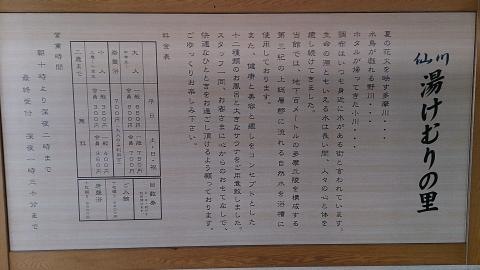 仙川
湯けむりの里
夏の花火を映す多摩川・・・
水鳥が戯れる野川・・・
ホタルが帰ってきた小川・・・
調布はいつも身近に水がある街と言われています。
生命の源ともいえる水は長い間、人々の心と体を
癒し続けてきました。
当館では、地下百メートルの多摩丘陵を構成する
第三紀の上総層群に流れる自然水を浴槽に
使用しております。
また、健康と美容と癒しをコンセプトとした
十二種類のお風呂と大きなサウナをご用意致しました。
スタッフ一同、お客さまに心からのおもてなしで、
快適なひとときをお過ごし頂けるよう願っております。
ごゆっくりお楽しみ下さい。
料金表
平日
土・日・祝
回数券
大人
小人
岩盤浴
二歳まで
無料
営業時間
朝十時より深夜二時まで
最終受付 深夜一時三十分まで